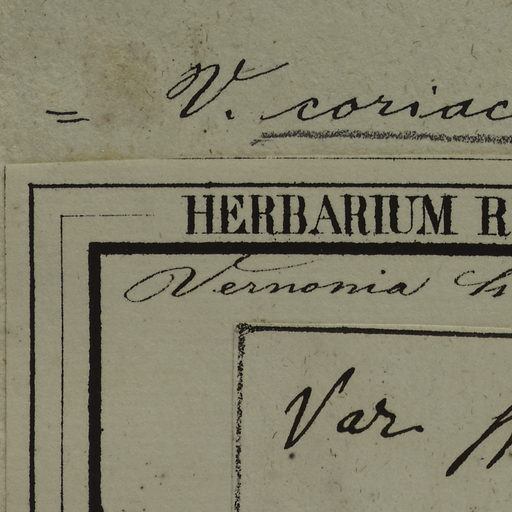 = V. coriac
HERBARIUM R
Vernonia
Var